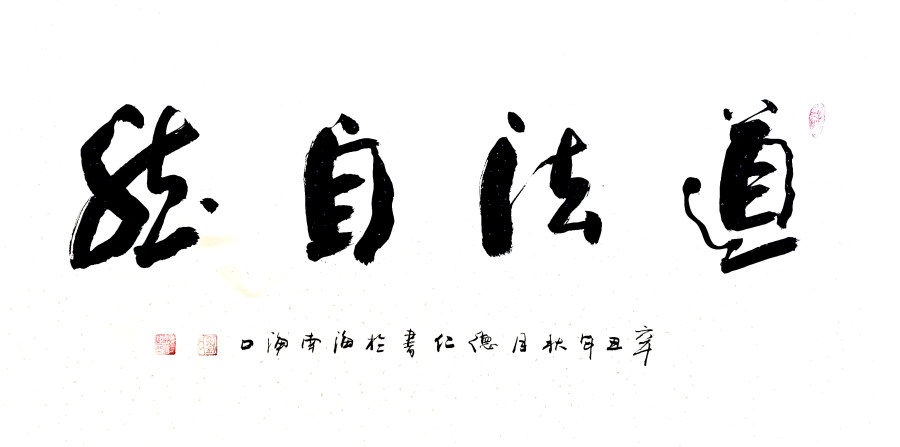 道法自然
辛丑年秋月德仁書於海南海口